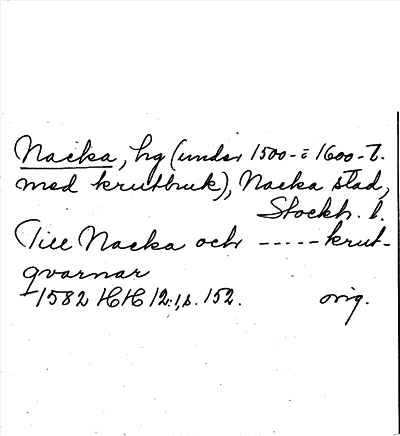 Nacka, hg (under 1500- o 1600-t.
med krutbruk), Nacka stad,
Stockh. l.
Till Nacka och ----- krut-
qvarnar
1582 HH 12:1, s. 152. orig.